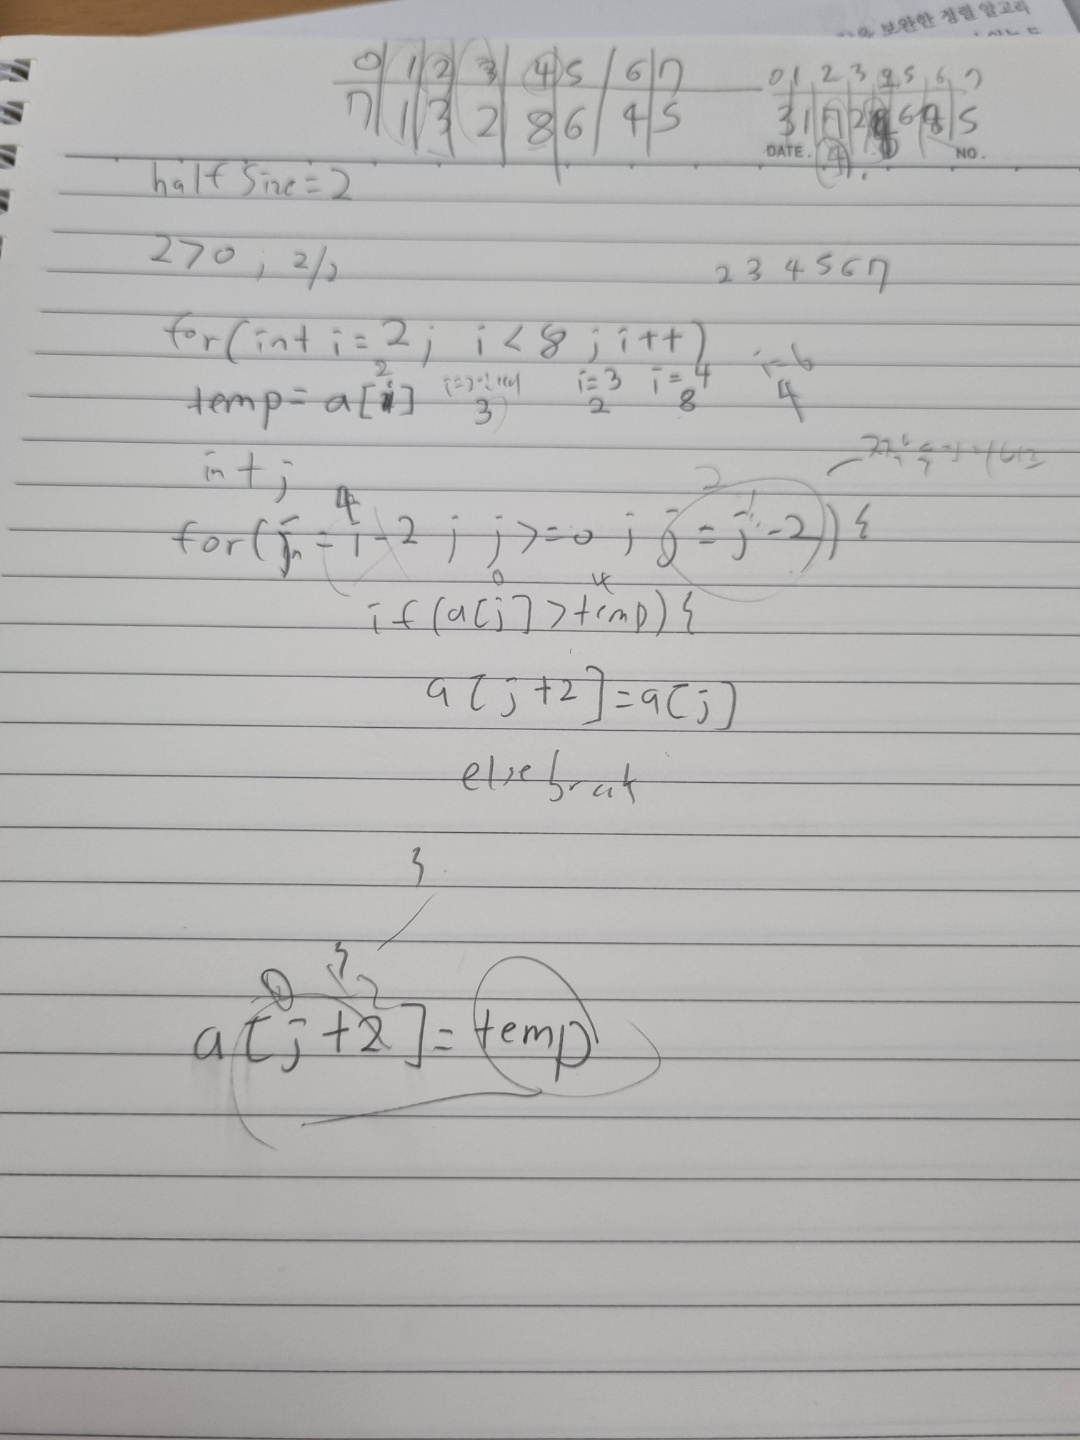 보완한 정렬 알고리
0 1 2 3 4 5 6 7
7 1 3 2 8 6 4 5
0 1 2 3 4 5 6 7
3 1 7 2 6 8 5
DATE. 4 NO.
half Size = 2
2 > 0 ; 2/2
2 3 4 5 6 7
for(int i = 2; i < 8; i++)
2
temp = a[i] 3 i=3 2 i=4 8 i=6 4
int j
4 2
for(j = i - 2 ; j >= 0 ; j = j - 2)) {
0 4
if(a[j] > temp) {
a[j+2] = a[j]
else brak
}
0 } 2
a[j+2] = temp